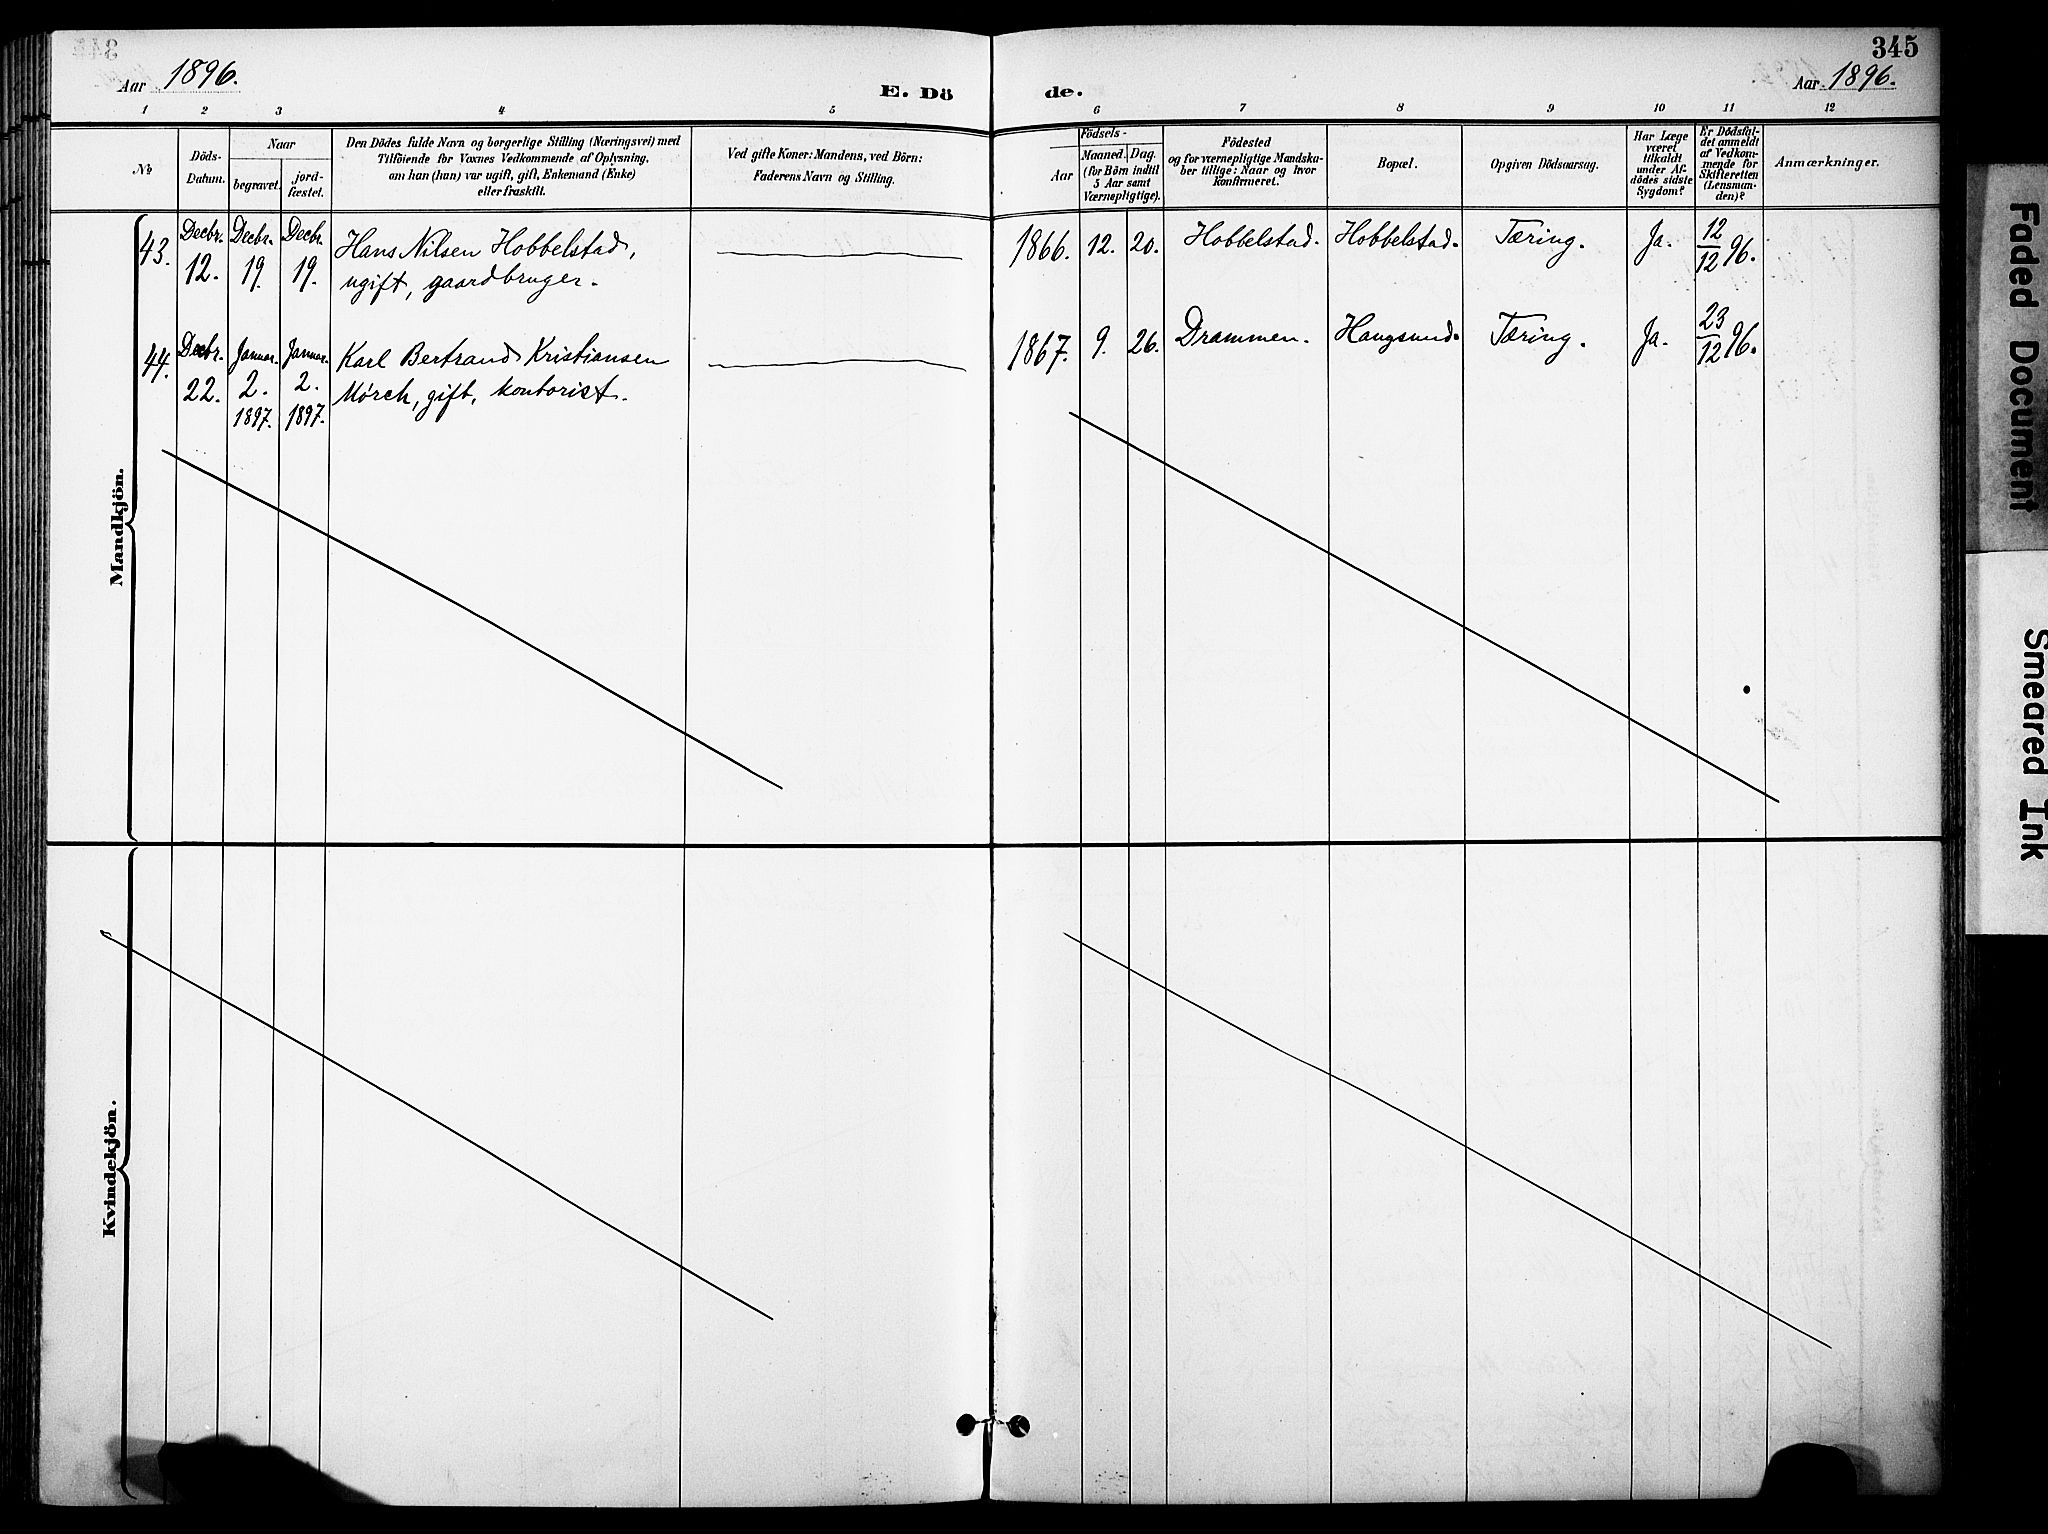 345
Aar 1896.
E. Döde.
Aar 1896.
1 2 3 4 5 6 7 8 9 10 11 12
No
Döds-
Datum.
Naar
begravet.
jord-
fæstet.
Den Dödes fulde Navn og borgerlige Stilling (Næringsvei) med
Tilföiende for Voxnes Vedkommende af Oplysning,
om han (hun) var ugift, gift, Enkemand (Enke)
eller fraskilt.
Ved gifte Koner: Mandens, ved Börn:
Faderens Navn og Stilling.
Födsels-
Aar
Maaned. Dag.
(for Börn indtil
5 Aar samt
Værnepligtige).
Födested
og for værnepligtige Mandska-
ber tillige: Naar og hvor
konfirmeret.
Bopæl.
Opgiven Dödsaarsag.
Har Læge
været
tilkaldt
under Af-
dödes sidste
Sygdom?
Er Dödsfal-
det anmeldt
af Vedkom-
mende for
Skifteretten
(Lensman-
den)?
Anmærkninger.
Mandkjön.
43. Decbr. 12. Decbr. 19. Decbr. 19. Hans Nilsen Hobbelstad,
ugift, gaardbruger.
1866. 12. 20. Hobbelstad. Hobbelstad. Tæring. Ja. 12/12 96.
44. Decbr. 22. Januar 2. 1897. Januar 2. 1897. Karl Bertrand Kristiansen
Mörch, gift, kontorist.
1867. 9. 26. Drammen. Haugsund. Tæring. Ja. 23/12 96.
Kvindekjön.
Faded Document
Smeared Ink